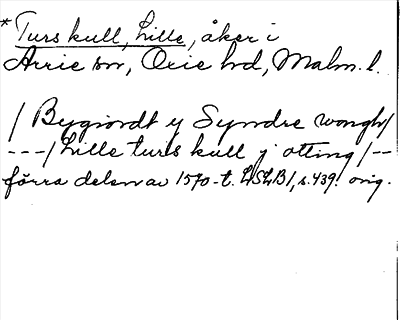 * Turs kull, Lille, åker i
Arrie sn, Oxie hd, Malm. l.
/ Bygiordt y Syndre wongh/
---/ Lille turs kull j otting /--
förra delen av 1570-t. LSLB1, s. 439. orig.